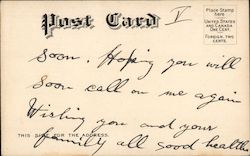 Post Card
V
Place Stamp
here.
UNITED STATES
AND CANADA
ONE CENT.
FOREIGN, TWO
CENTS.
Soon. Hoping you will
Soon call on me again
Wishing you and your
THIS SIDE FOR THE ADDRESS.
family all good health